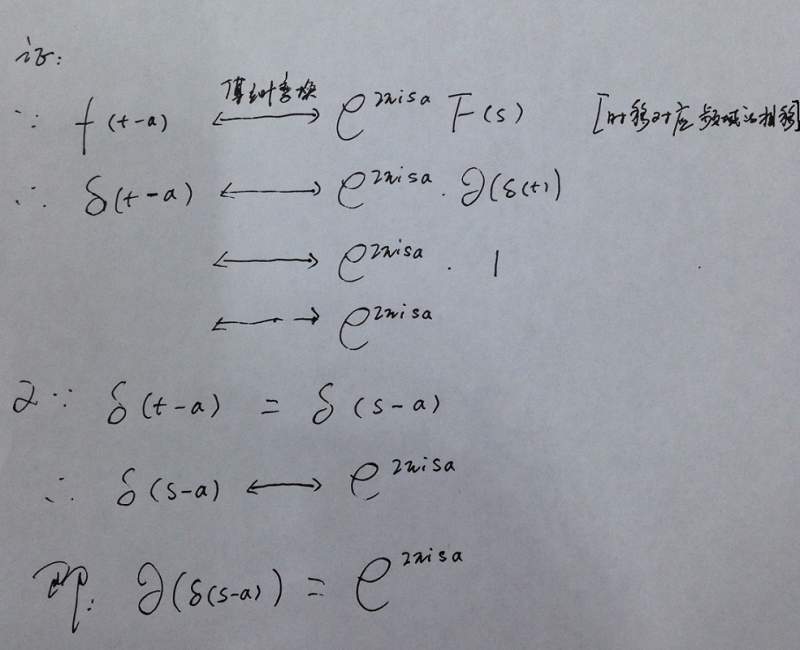 证:
∵ f(t-a) ⟷ 傅利叶变换 e^{2πisa} F(s) [时移对应频域的相移]
∴ δ(t-a) ⟷ e^{2πisa} · ∂(δ(t))
⟷ e^{2πisa} · 1
⟷ e^{2πisa}
又∵ δ(t-a) = δ(s-a)
∴ δ(s-a) ⟷ e^{2πisa}
即: ∂(δ(s-a)) = e^{2πisa}